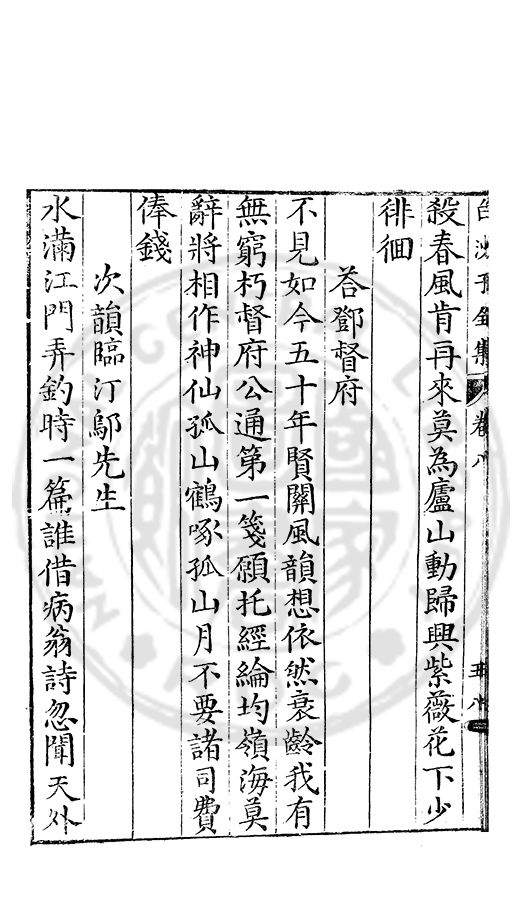 白沙子全集 卷八 五八
殺春風肯再來莫為廬山動歸興紫薇花下少
徘徊
荅鄧督府
不見如今五十年賢關風韻想依然衰齡我有
無窮朽督府公通第一箋願托經綸均嶺海莫
辭將相作神仙孤山鶴啄孤山月不要諸司費
俸錢
次韻臨汀鄔先生
水滿江門弄釣時一篇誰借病翁詩忽聞天外